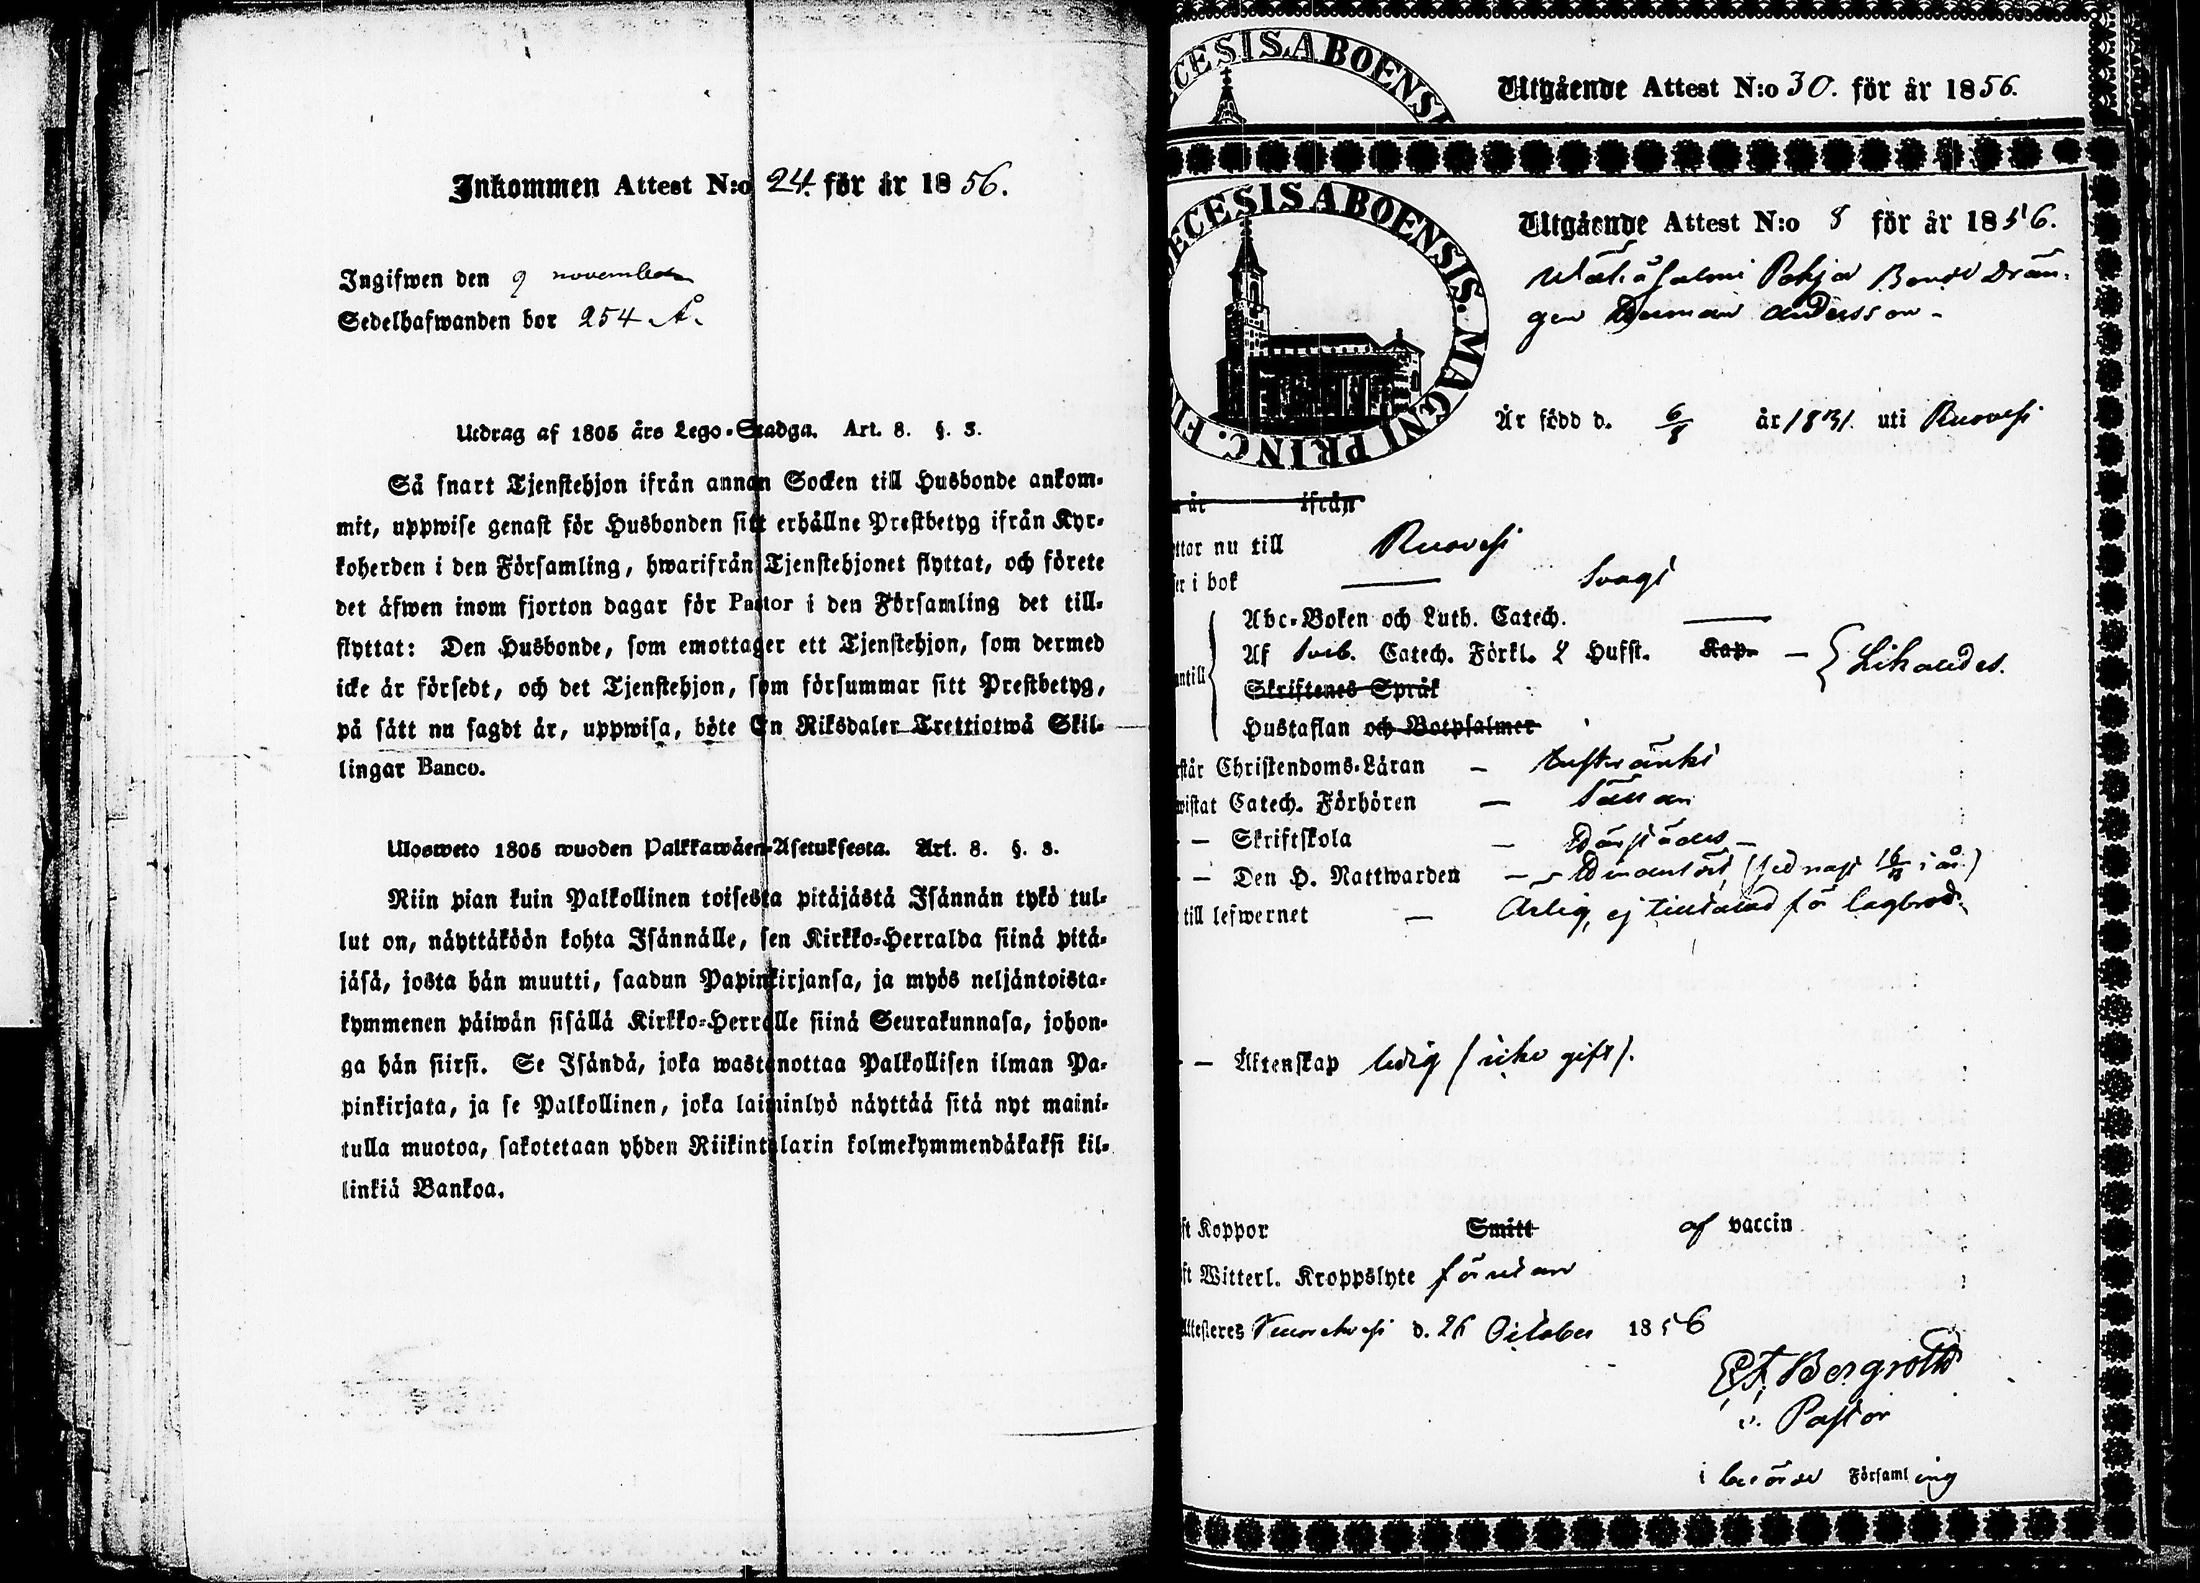 Inkommen Attest N:o 24. för år 1856.
Ingifwen den 9 november
Sedelhafwanden bor 254 Å.
Utdrag af 1805 års Lego-Stadga. Art. 8. §. 3.
Så snart Tjenstehjon ifrån annan Socken till Husbonde ankom-
mit, uppwise genast för Husbonden sitt erhållne Prestbetyg ifrån Kyr-
koherden i den Församling, hwarifrån Tjenstehjonet flyttat, och förete
det äfwen inom fjorton dagar för Pastor i den Församling det till-
flyttat: Den Husbonde, som emottager ett Tjenstehjon, som dermed
icke är försedt, och det Tjenstehjon, som försummar sitt Prestbetyg,
på sätt nu sagdt är, uppwisa, böte En Riksdaler Trettiotwå Skil-
lingar Banco.
Ulosweto 1805 wuoden Palkkawäen-Asetuksesta. Art. 8. §. 3.
Niin pian kuin Palkollinen toisesta pitäjästä Isännän tykö tul-
lut on, näyttäköön kohta Isännälle, sen Kirkko-Herralda siinä pitä-
jäsä, josta hän muutti, saadun Papinkirjansa, ja myös neljäntoista-
kymmenen päiwän sisällä Kirkko-Herralle siinä Seurakunnasa, johon-
ga hän siirsi. Se Isändä, joka wastanottaa Palkollisen ilman Pa-
pinkirjata, ja se Palkollinen, joka laiminlyö näyttää sitä nyt maini-
tulla muotoa, sakotetaan yhden Riikintalarin kolmekymmendäkaksi kil-
linkiä Bankoa.
ECESIS ABOENSI
Utgående Attest N:o 30. för år 1856.
ECESIS ABOENSIS. MAGNI PRINC. FI
Utgående Attest N:o 8 för år 1856.
Wäliäsalmi Pohja Bonde Drän-
gen Herman Andersson -
Är född d. 6/8 år 1831. uti Ruovesi
är ifrån
ttar nu till Ruovesi
er i bok — svagt
Abc-Boken och Luth. Catech. —
Af Sveb. Catech. Förkl. 2 Hufst. Kap. — { Likaledes.
antill
Skriftenes Språk
Hustaflan och Botpsalmer
rstår Christendoms-Läran —
wistat Catech. Förhören — sällan
— Skriftskola — Därstädes —
— Den H. Nattwarden — i år)
till lefwernet — Ärlig, ej tilltalad för lagbrott.
— Äktenskap ledig (icke gift).
ft Koppor Smitt af vaccin
ft Witterl. Kroppslyte förutan
Attesteres d. 26 October 1856
Bergroth
v. Pastor
i berörde Församling